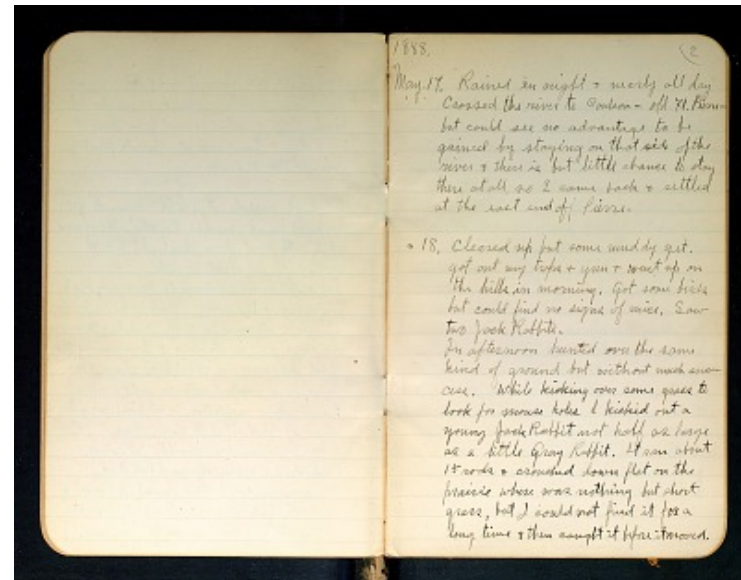 1888.
2
May. 17. Rained in night + nearly all day
Crossed the river to - old Ft. Pierre
but could see no advantage to be
gained by staying on that side of the
river + there is but little chance to stay
there at all so I came back + settled
at the east end of Pierre.
" 18. Cleared up but some muddy yet.
got out my traps + gun + went up on
the hills in morning. Got some birds
but could find no signs of mice. Saw
two Jack Rabbits.
In afternoon hunted over the same
kind of ground but without much suc-
cess. While kicking over some grass to
look for mouse holes I kicked out a
young Jack Rabbit not half as large
as a little Gray Rabbit. It ran about
15 rods + crouched down flat on the
prairie where was nothing but short
grass, but I could not find it for a
long time + then caught it before it moved.